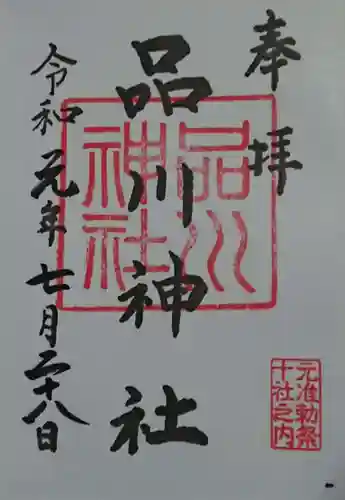 奉拝
品川神社
令和元年七月二十八日
品川神社
元准勅祭
十社之内